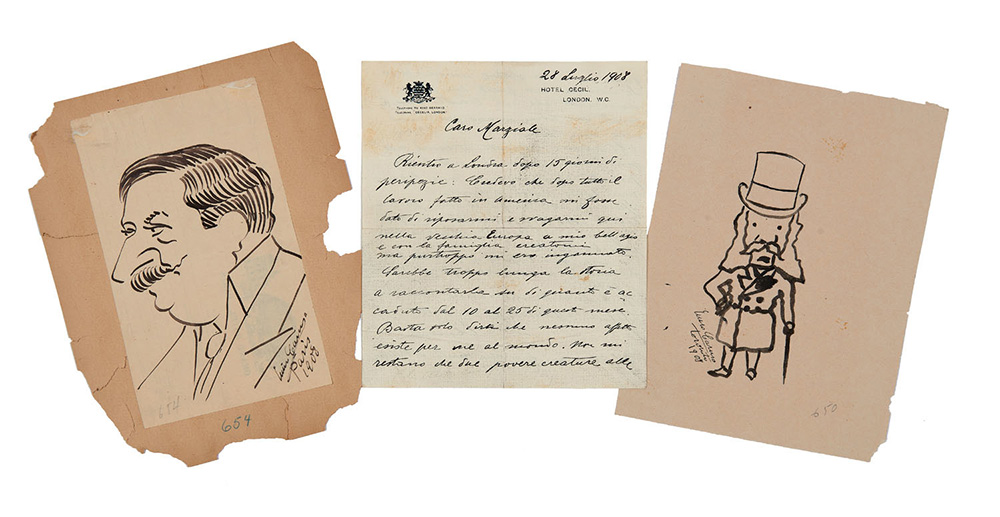 Enrico Caruso
Paris
1908
654
654
TELEPHONE Nº 4060 GERRARD
TELEGRAMS "CECELIA, LONDON"
28 Luglio 1908
HOTEL CECIL.
LONDON. W.C.
Caro Marziale
Rientro a Londra dopo 15 giorni di
peripezie: Credevo che dopo tutto il
lavoro fatto in America mi fosse
dato di riposarmi e svagarmi qui
nella vecchia Europa a mio bell'agio
e con la famiglia creatomi
ma purtroppo mi ero ingannato.
Sarebbe troppo lunga la storia
a raccontarla su di quanto è ac-
caduto dal 10 al 25 di questo mese.
Basta solo dirti che nessuno affetto
esiste per me al mondo. Non mi
restano che due povere creature alle
Enrico Caruso
Toronto
1908
650